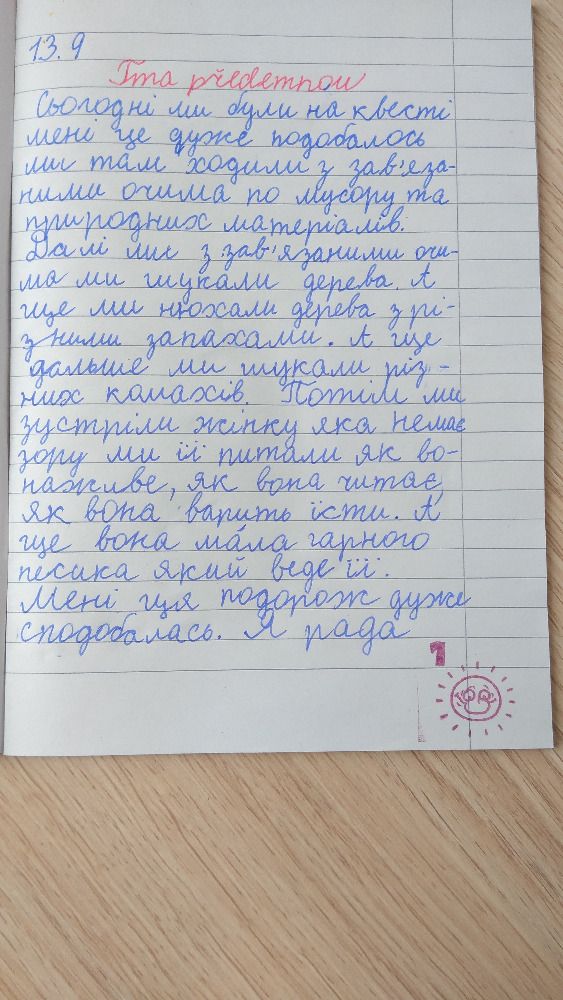 13.9
Tma přede mnou
Сьогодні ми були на квесті
мені це дуже подобалось
ми там ходили з зав'яза-
ними очима по мусору та
природних матеріалів.
Далі ми з зав'язаними очи-
ма ми шукали дерева. А
ще ми нюхали дерева з рі-
зними запахами. А ще
дальше ми шукали різ-
них комахів. Потім ми
зустріли жінку яка немає
зору ми її питали як во-
наживе, як вона читає,
як вона варить їсти. А
ще вона мала гарного
песика який веде її.
Мені ця подорож дуже
сподобалась. Я рада
1
TOP!